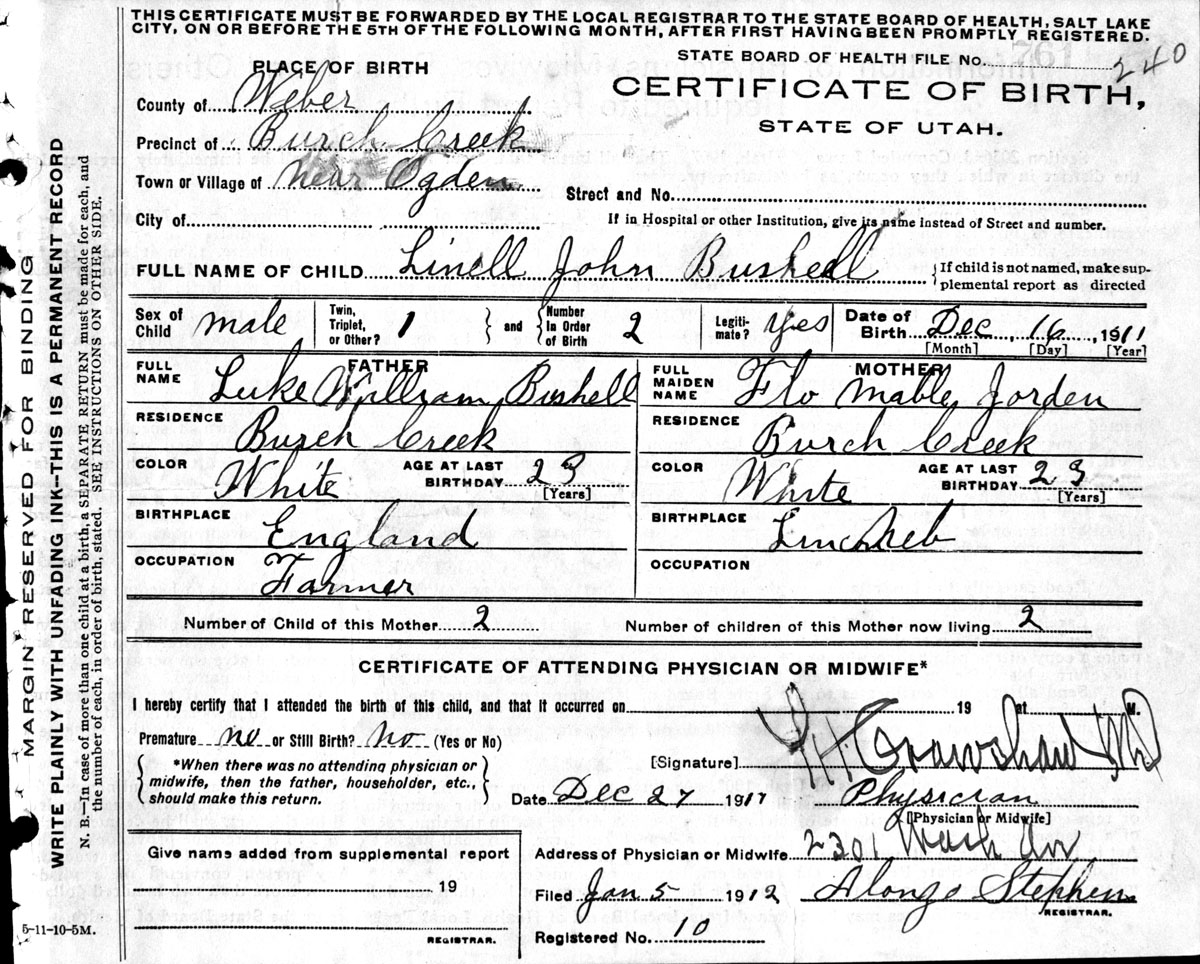 THIS CERTIFICATE MUST BE FORWARDED BY THE LOCAL REGISTRAR TO THE STATE BOARD OF HEALTH, SALT LAKE
CITY, ON OR BEFORE THE 5TH OF THE FOLLOWING MONTH, AFTER FIRST HAVING BEEN PROMPTLY REGISTERED.
STATE BOARD OF HEALTH FILE No. 240
PLACE OF BIRTH
CERTIFICATE OF BIRTH,
STATE OF UTAH.
County of Weber
Precinct of Burch Creek
Town or Village of near Ogden
Street and No.
City of
If in Hospital or other Institution, give its name instead of Street and number.
FULL NAME OF CHILD Linell John Bushell
If child is not named, make sup-
plemental report as directed
Sex of Child male Twin, Triplet, or Other? 1 and Number In Order of Birth 2 Legiti-mate? yes Date of Birth Dec 16 1911
[Month] [Day] [Year]
FATHER MOTHER
FULL NAME Luke William Bushell FULL MAIDEN NAME Flo Mable Jorden
RESIDENCE Burch Creek RESIDENCE Burch Creek
COLOR White AGE AT LAST BIRTHDAY 23 [Years] COLOR White AGE AT LAST BIRTHDAY 23 [Years]
BIRTHPLACE England BIRTHPLACE Linc Neb
OCCUPATION Farmer OCCUPATION
Number of Child of this Mother 2 Number of children of this Mother now living 2
CERTIFICATE OF ATTENDING PHYSICIAN OR MIDWIFE*
I hereby certify that I attended the birth of this child, and that it occurred on 19 at M.
Premature no or Still Birth? no (Yes or No)
*When there was no attending physician or
midwife, then the father, householder, etc.,
should make this return.
[Signature] Crawshaw MD
Date Dec 27 1911 Physician
[Physician or Midwife]
Give name added from supplemental report
Address of Physician or Midwife 2301 Wash Av
19
Filed Jan 5 1912 Alonzo Stephen
REGISTRAR.
Registered No. 10
REGISTRAR.
5-11-10-5M.
MARGIN RESERVED FOR BINDING
WRITE PLAINLY WITH UNFADING INK--THIS IS A PERMANENT RECORD
N. B. in case of more than one child at a birth, a SEPARATE RETURN must be made for each, and
the number of each, in order of birth, stated. SEE INSTRUCTIONS ON OTHER SIDE.